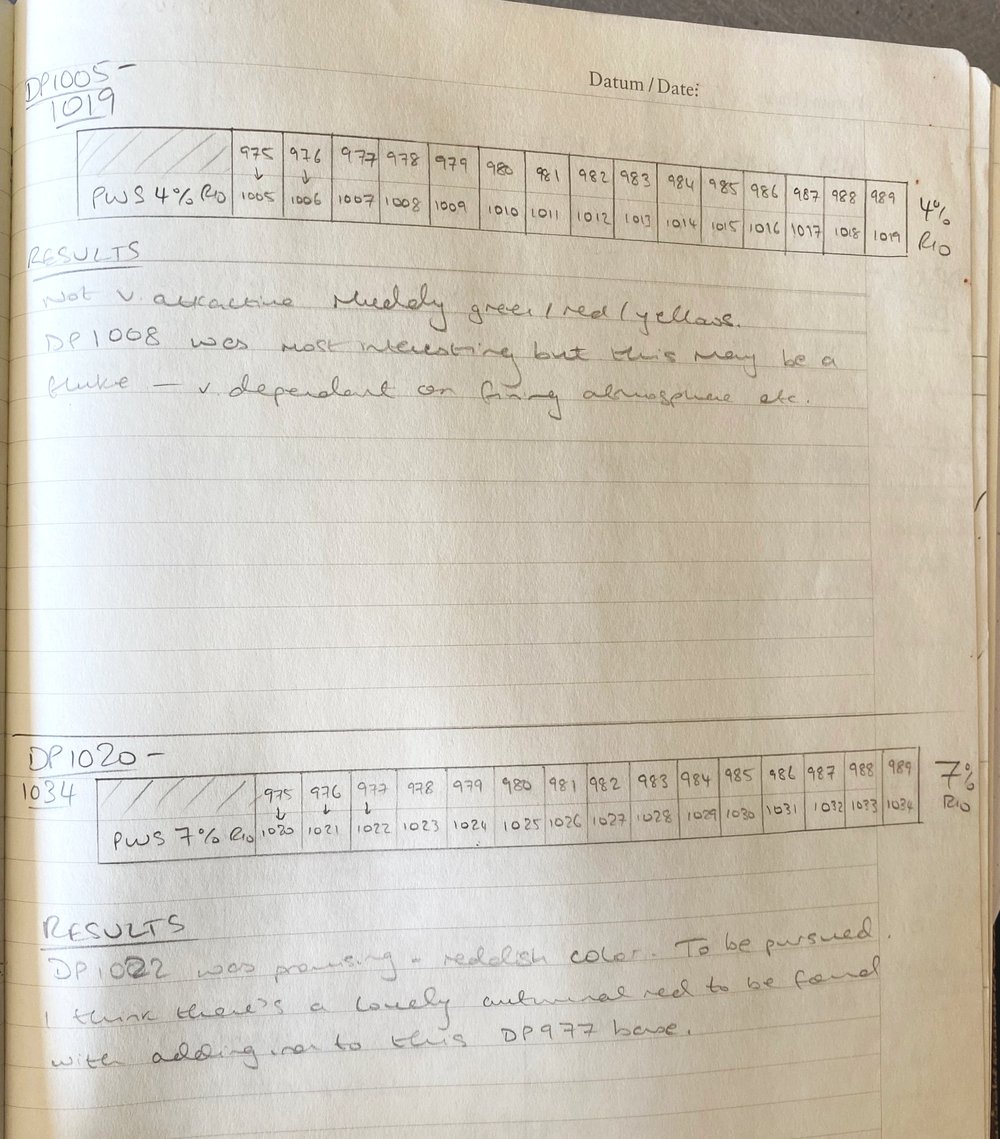 Datum / Date:
DP1005 -
1019
975 976 977 978 979 980 981 982 983 984 985 986 987 988 989
↓ ↓
PWS 4% RIO 1005 1006 1007 1008 1009 1010 1011 1012 1013 1014 1015 1016 1017 1018 1019
4%
RIO
RESULTS
Not v. attractive Muddy green/red/yellows.
DP1008 was most interesting but this may be a
fluke — v. dependant on firing atmosphere etc.
DP1020 -
1034
975 976 977 978 979 980 981 982 983 984 985 986 987 988 989
↓ ↓ ↓
PWS 7% RIO 1020 1021 1022 1023 1024 1025 1026 1027 1028 1029 1030 1031 1032 1033 1034
7%
RIO
RESULTS
DP1022 was promising - reddish color. To be pursued.
I think there's a lovely autumnal red to be found
with adding iron to this DP977 base.